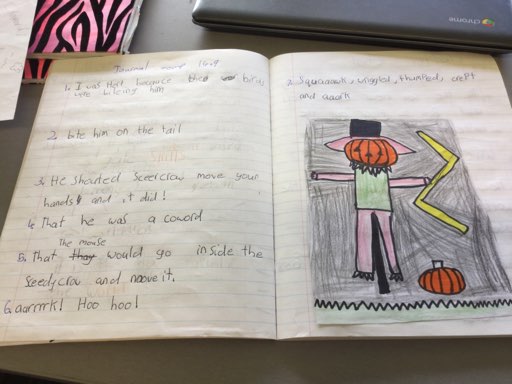 chrome
Journal 16.9
1. I was that because the birds
were biteing him
2. bite him on the tail
3. He shouted Sceercrow move your
hands and it did!
4. That he was a coword
The mouse
5. That thay would go inside the
Seedycrow and move it.
6. aarrrk! Hoo hoo!
2. Squaaawk, wriggled, thumped, crept
and aaark